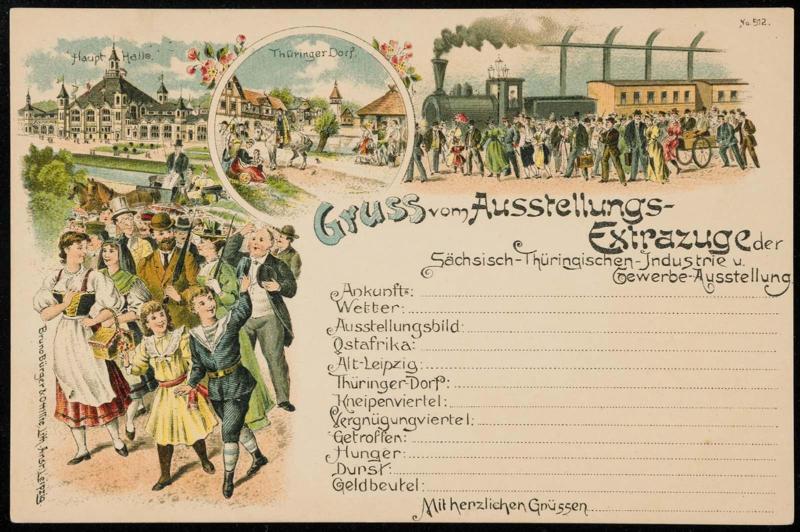 No. 512.
Haupt Halle.
Thüringer Dorf.
Gruss vom Ausstellungs-
Extrazuge der
Sächsisch-Thüringischen-Industrie u.
Gewerbe-Ausstellung
Ankunft:
Wetter:
Ausstellungsbild:
Ostafrika:
Alt-Leipzig:
Thüringer-Dorf:
Kneipenviertel:
Vergnügungviertel:
Getroffen:
Hunger:
Durst:
Geldbeutel:
Mit herzlichen Grüssen
Bruno Bürger & Ottillie, Lith. Anst. Leipzig